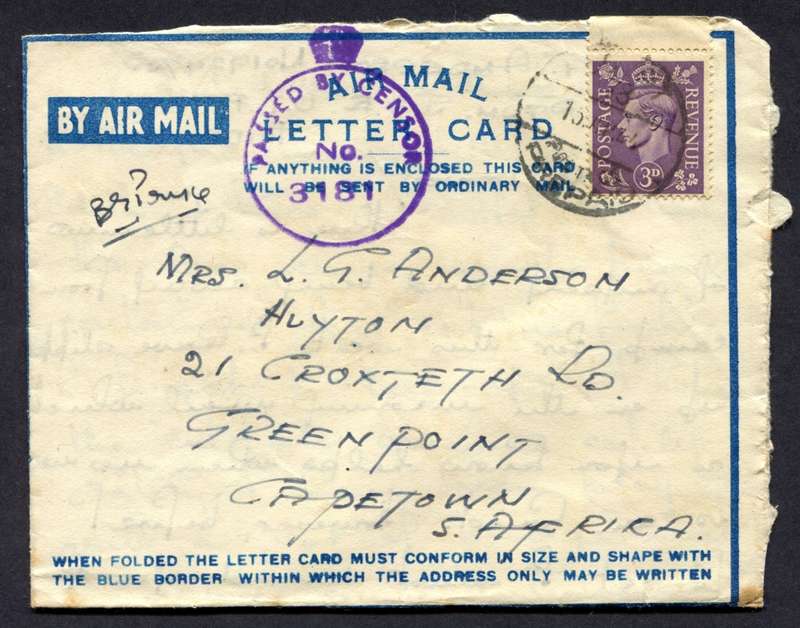 AIR MAIL
BY AIR MAIL
LETTER CARD
IF ANYTHING IS ENCLOSED THIS CARD
WILL BE SENT BY ORDINARY MAIL
PASSED BY CENSOR
No.
3181
POSTAGE
REVENUE
3D
MRS. L. G. ANDERSON
HUYTON
21 CROXTETH RD.
GREEN POINT
CAPETOWN
S. AFRIKA.
WHEN FOLDED THE LETTER CARD MUST CONFORM IN SIZE AND SHAPE WITH
THE BLUE BORDER WITHIN WHICH THE ADDRESS ONLY MAY BE WRITTEN